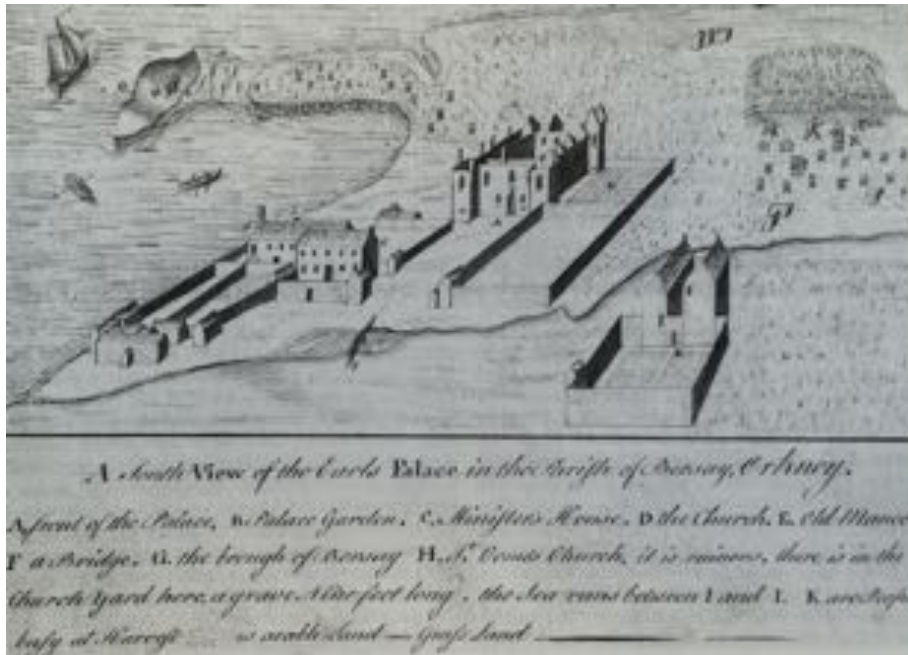 A South View of the Earls Palace in the Parish of Birsay, Orkney.
A front of the Palace, B. Palace Garden. C. Ministers House. D the Church. E. Old Manse
F a Bridge. G. the brough of Birsay H. St. Church, it is ruinous, there is in the
Church Yard here a grave feet long, the Sea runs between I and I. K are
busy at Harvest is arable Land — Grass Land